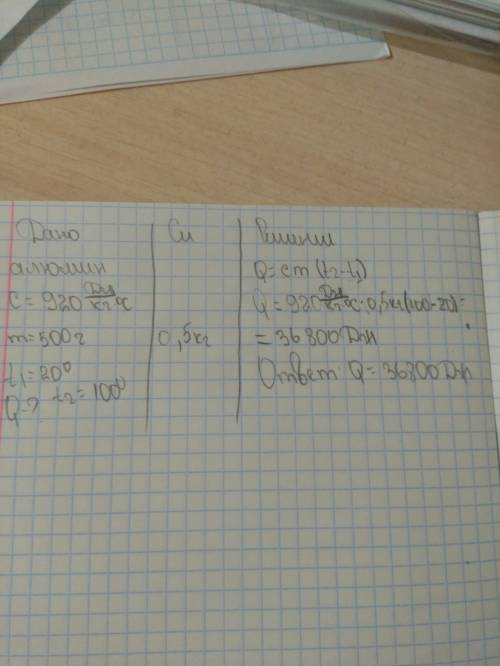 Дано
алюмин
C = 920 Дж/кг°С
m = 500 г
t₁ = 20⁰
t₂ = 100⁰
Q - ?
Си
0,5 кг
Решение
Q = cm (t₂ - t₁)
Q = 920 Дж/кг°С · 0,5 кг (100 - 20) =
= 36800 Дж
Ответ: Q = 36800 Дж